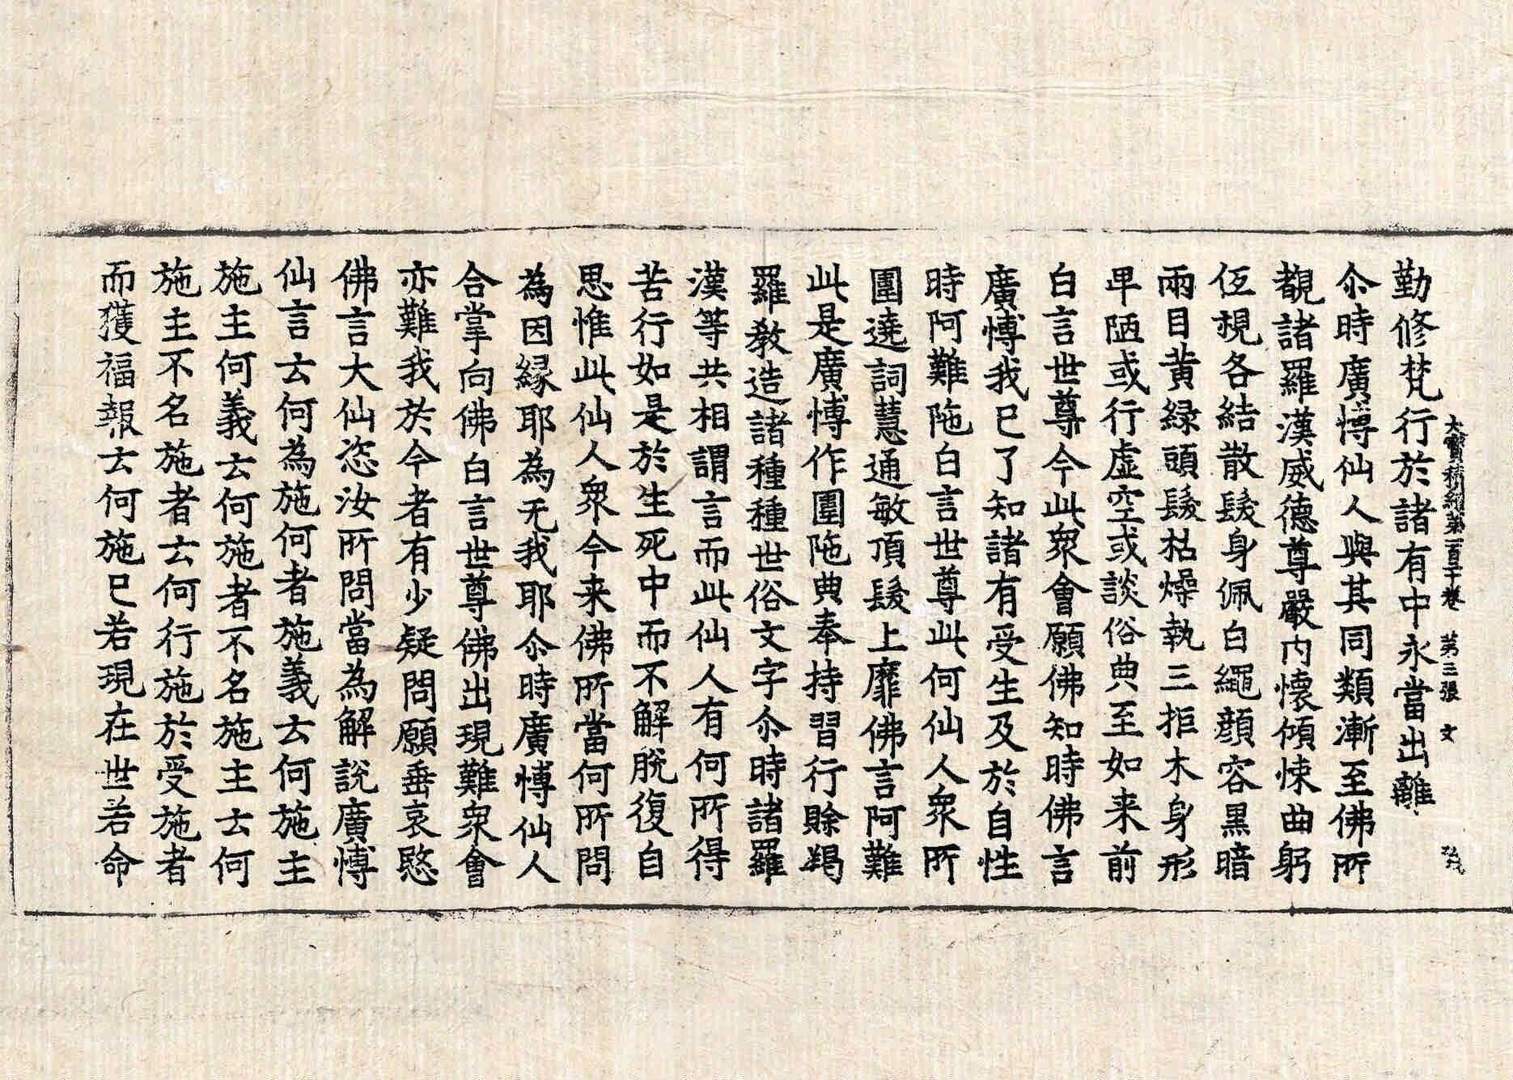 大寶積經第一百二十卷 第三張 文
勤修梵行於諸有中永當出離
尒時廣愽仙人與其同類漸至佛所
覩諸羅漢威德尊嚴內懷傾悚曲躬
仾視各結散髮身佩白繩顏容黑暗
兩目黃綠頭髮枯燥執三拒木身形
卑陋或行虛空或談俗典至如来前
白言世尊今此眾會願佛知時佛言
廣愽我已了知諸有受生及於自性
時阿難陁白言世尊此何仙人眾所
圍遶詞慧通敏頂髮上靡佛言阿難
此是廣愽作圍陁典奉持習行賖羯
羅教造諸種種世俗文字尒時諸羅
漢等共相謂言而此仙人有何所得
苦行如是於生死中而不解脫復自
思惟此仙人眾今来佛所當何所問
為因緣耶為无我耶尒時廣愽仙人
合掌向佛白言世尊佛出現難眾會
亦難我於今者有少疑問願垂哀愍
佛言大仙恣汝所問當為解說廣愽
仙言云何為施何者施義云何施主
施主何義云何施者不名施主云何
施主不名施者云何行施於受施者
而獲福報云何施已若現在世若命